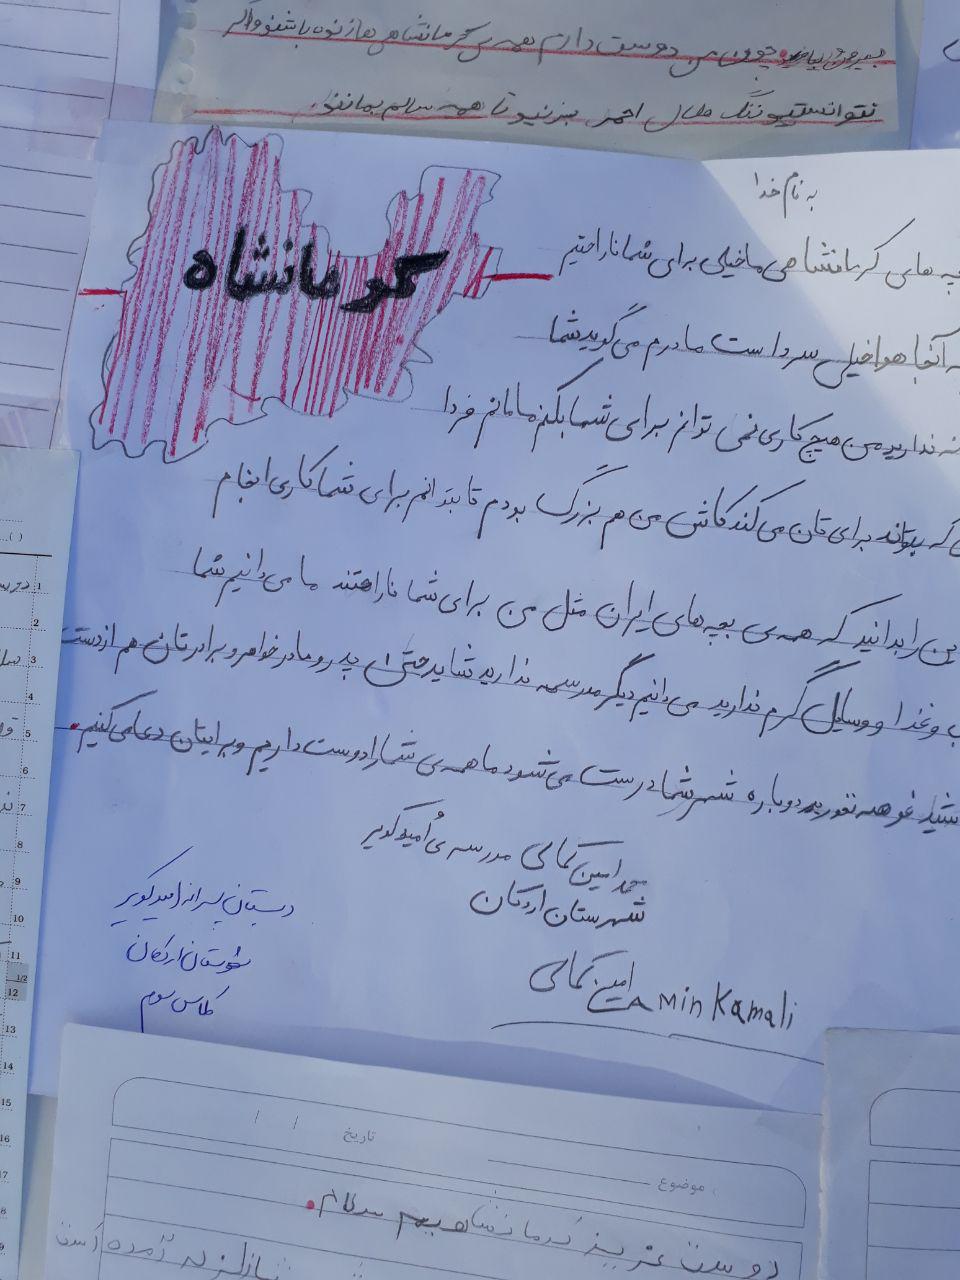 بیرون بیایید چون من دوست دارم همه ی کرمانشاهی ها زنده باشند و اگر
نتوانستید زنگ هلال احمر بزنید تا همه سالم بمانند.
به نام خدا
کرمانشاه
بچه های کرمانشاهی ما خیلی برای شما ناراحتیم
آنجا هوا خیلی سرد است مادرم می گوید شما
ندارید من هیچ کاری نمی توانم برای شما بکنم مامانم فردا
که بتواند برای تان می کند کاش من هم بزرگ بودم تا بتوانم برای شما کاری انجام
این را بدانید که همه ی بچه های ایران مثل من برای شما ناراحتند ما می دانیم شما
و غذا و وسایل گرم ندارید می دانیم دیگر مدرسه ندارید شاید حتی پدر و مادر خواهر و برادرتان هم از دست
غصه نخورید دوباره شهر شما درست می شود ما همه ی شما را دوست داریم و برایتان دعا می کنیم.
محمد امین کمالی مدرسه ی اُمید کویر
شهرستان اردکان
امین کمالی
Amin Kamali
دبستان پسرانه امید کویر
شهرستان اردکان
کلاس سوم
تاریخ / /
موضوع
دوست عزیز کرمانشاهیم سلام.
زلزله آمده است
1
2
3
4
5
6
7
8
9
10
11
1/2
12
13
14
15
16
17